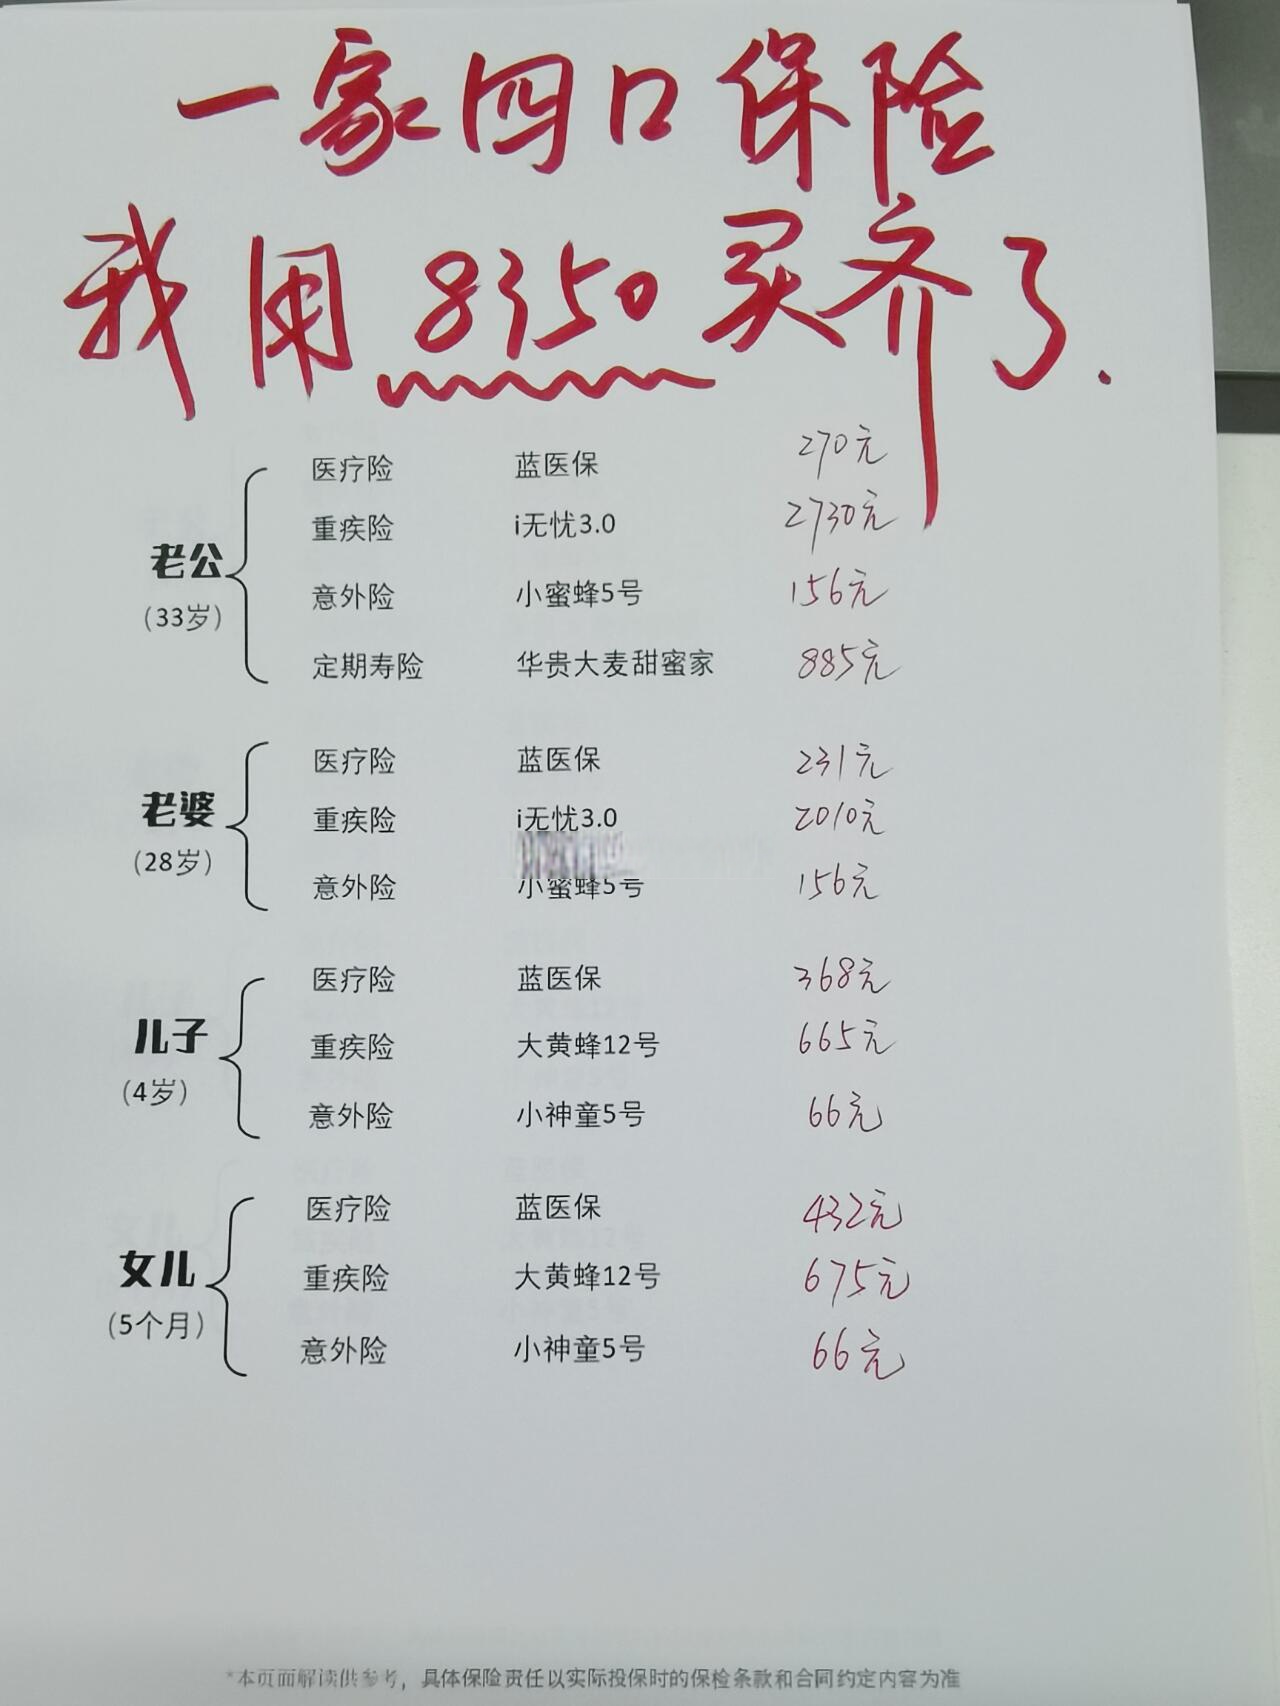 一家四口保险
我用8350买齐了.
老公
(33岁)
医疗险 蓝医保 270元
重疾险 i无忧3.0 2730元
意外险 小蜜蜂5号 156元
定期寿险 华贵大麦甜蜜家 885元
老婆
(28岁)
医疗险 蓝医保 231元
重疾险 i无忧3.0 2010元
意外险 小蜜蜂5号 156元
儿子
(4岁)
医疗险 蓝医保 368元
重疾险 大黄蜂12号 665元
意外险 小神童5号 66元
女儿
(5个月)
医疗险 蓝医保 432元
重疾险 大黄蜂12号 675元
意外险 小神童5号 66元
*本页面解读供参考，具体保险责任以实际投保时的保检条款和合同约定内容为准